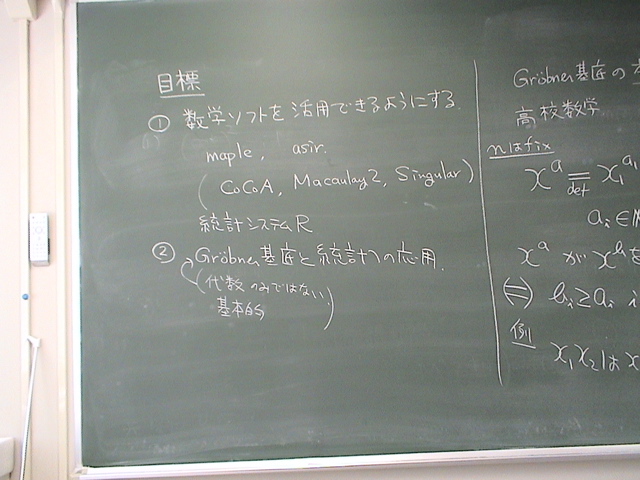 目標
① 数学ソフトを活用できるようにする.
maple, asir.
(CoCoA, Macaulay2, Singular)
統計システムR
② Gröbner基底と統計への応用.
(代数のみではない
基本的)
Gröbner基底の
高校数学
nはfix
x^a =def x₁^a₁
aᵢ ∈ ℕ
x^a が x^b を
⇔ bᵢ ≥ aᵢ i
例
x₁x₂は x